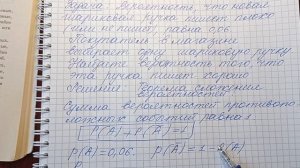 Задача: Вероятность, что новая
шариковая ручка пишет плохо
(или не пишет) равна 0,06.
Покупатель в магазине
выбирает одну шариковую ручку
Найдите вероятность того, что
эта ручка пишет хорошо
Решение: Теорема сложения
вероятностей
Сумма вероятностей противопо-
ложных событий равна 1
P(A) + P(A̅) = 1
P(A) = 0,06. P(A̅) = 1 - P(A)
P